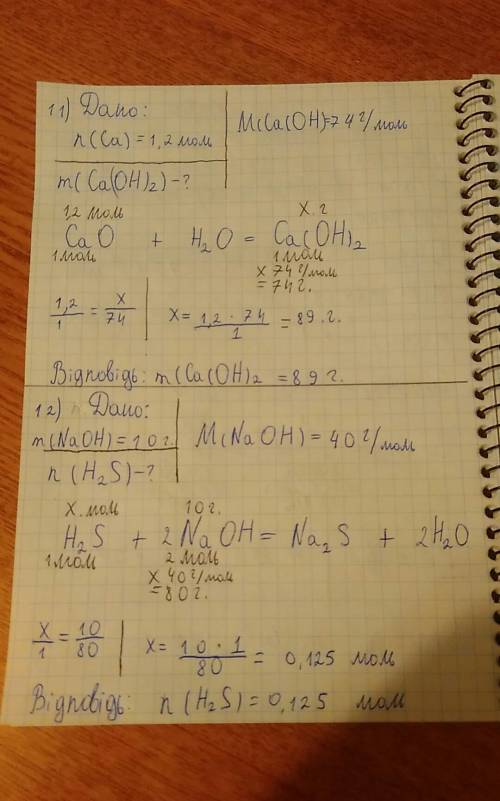 11) Дано:
n(Ca) = 1,2 мол
M(Ca(OH)=74 г/мол
m(Ca(OH)₂)-?
12 моль X. г
CaO + H₂O = Ca(OH)₂
1 мол 1 мол
x 74 г/мол
= 74 г.
1,2/1 = x/74 | X = 1,2 · 74/1 = 89. г.
Відповідь: m(Ca(OH)₂ = 89 г.
12) Дано:
m(NaOH) = 10 г. M(NaOH) = 40 г/мол
n (H₂S)-?
X. мол 10 г.
H₂S + 2 NaOH = Na₂S + 2H₂O
1 мол 2 моль
x 40 г/мол
= 80 г.
X/1 = 10/80 | X = 10 · 1/80 = 0,125 мол
Відповідь: n (H₂S) = 0,125 мол